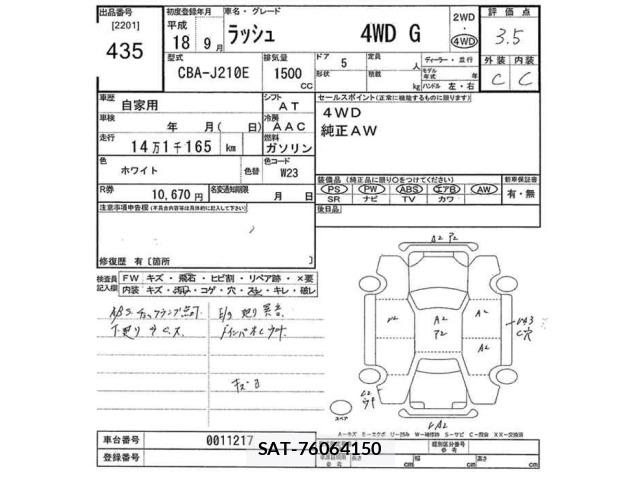 出品番号 初度登録年月 車名・グレード 2WD 評価点
[2201] 平成 ラッシュ 4WD G ・ 3.5
435 18年9月 4WD
型式 排気量 ドア 5 定員 人 ディーラー・並行 外装 内装
CBA-J210E 1500 cc 形状 積載 kg モデル年式 年 ハンドル 左・右 C C
車歴 自家用 シフト AT セールスポイント(正常に機能するものに限ります)
車検 年 月( 日) 冷房 AAC 4WD
走行 14万1千165 km 燃料 ガソリン 純正AW
色 ホワイト 色替 色コード W23
装備品(純正品に限り○をつけてください) 新車保証書
R券 10,670円 名変通知期限 月 日 PS PW ABS エアB AW 有・無
SR ナビ TV カワ
注意事項申告欄(不具合内容等は具体的に記入して下さい) 後日品
修復歴 有[箇所 ]
検査員記入欄 FW キズ・飛石・ヒビ割・リペア跡・×要
内装 キズ・汚れ・コゲ・穴・スレ・キレ・破レ
A2 ア2
A2
ア2
A2
A2
スペア
A-キズ E-エクボ U-凹み W-補修跡 S-サビ C-腐食 XX-交換済
車台番号 0011217 類別区分番号
SAT-76064150
登録番号 長さ cm 幅 cm 高さ cm